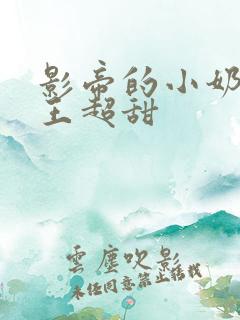 影帝的小奶
王超甜
雲塵吹影
未经同意禁止转载